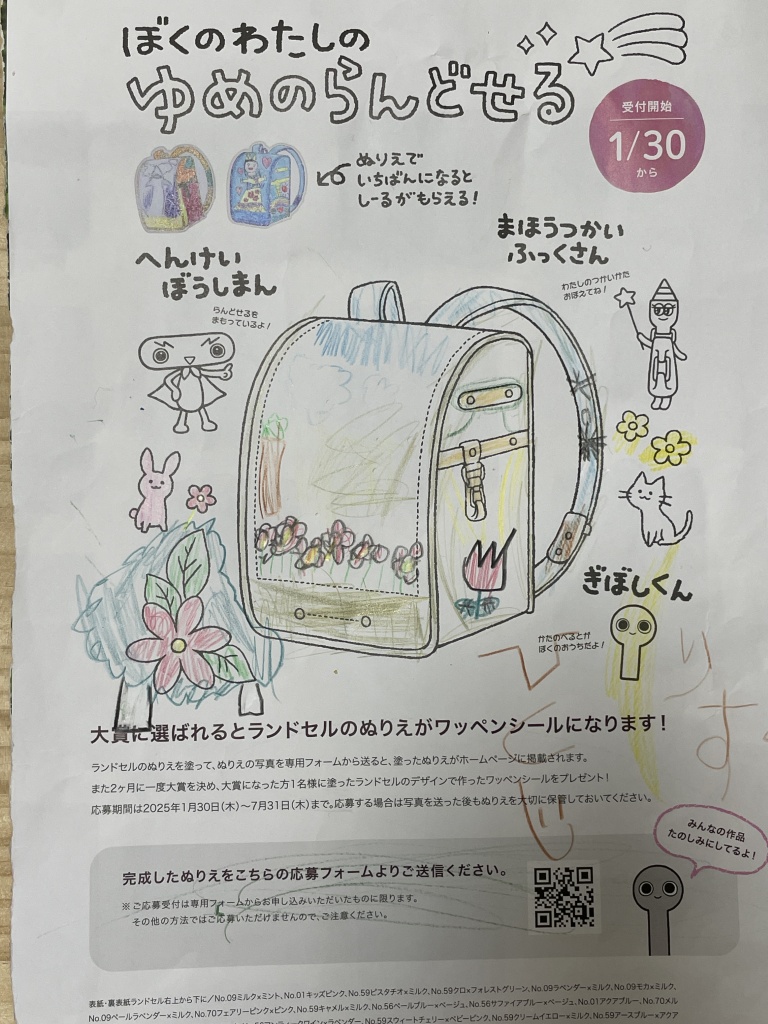 ぼくのわたしの
ゆめのらんどせる
受付開始
1/30
から
ぬりえで
いちばんになると
しーるがもらえる！
へんけい
ぼうしまん
らんどせるを
まもっているよ！
まほうつかい
ふっくさん
わたしのつかいかた
おぼえてね！
ぎぼしくん
かたのべるとが
ぼくのおうちだよ！
大賞に選ばれるとランドセルのぬりえがワッペンシールになります！
ランドセルのぬりえを塗って、ぬりえの写真を専用フォームから送ると、塗ったぬりえがホームページに掲載されます。
また2ヶ月に一度大賞を決め、大賞になった方1名様に塗ったランドセルのデザインで作ったワッペンシールをプレゼント！
応募期間は2025年1月30日(木)〜7月31日(木)まで。応募する場合は写真を送った後もぬりえを大切に保管しておいてください。
みんなの作品
たのしみにしてるよ！
完成したぬりえをこちらの応募フォームよりご送信ください。
※ご応募受付は専用フォームからお申し込みいただいたものに限ります。
その他の方法ではご応募いただけませんので、ご注意ください。
表紙・裏表紙ランドセル右上から下に／No.09ミルク×ミント、No.01キッズピンク、No.59ピスタチオ×ミルク、No.59クロ×フォレストグリーン、No.09ラベンダー×ミルク、No.09モカ×ミルク、
No.09ペールラベンダー×ミルク、No.70フェアリーピンク×ピンク、No.59キャメル×ミルク、No.56ペールブルー×ベージュ、No.56サファイアブルー×ベージュ、No.01アクアブルー、No.70メル